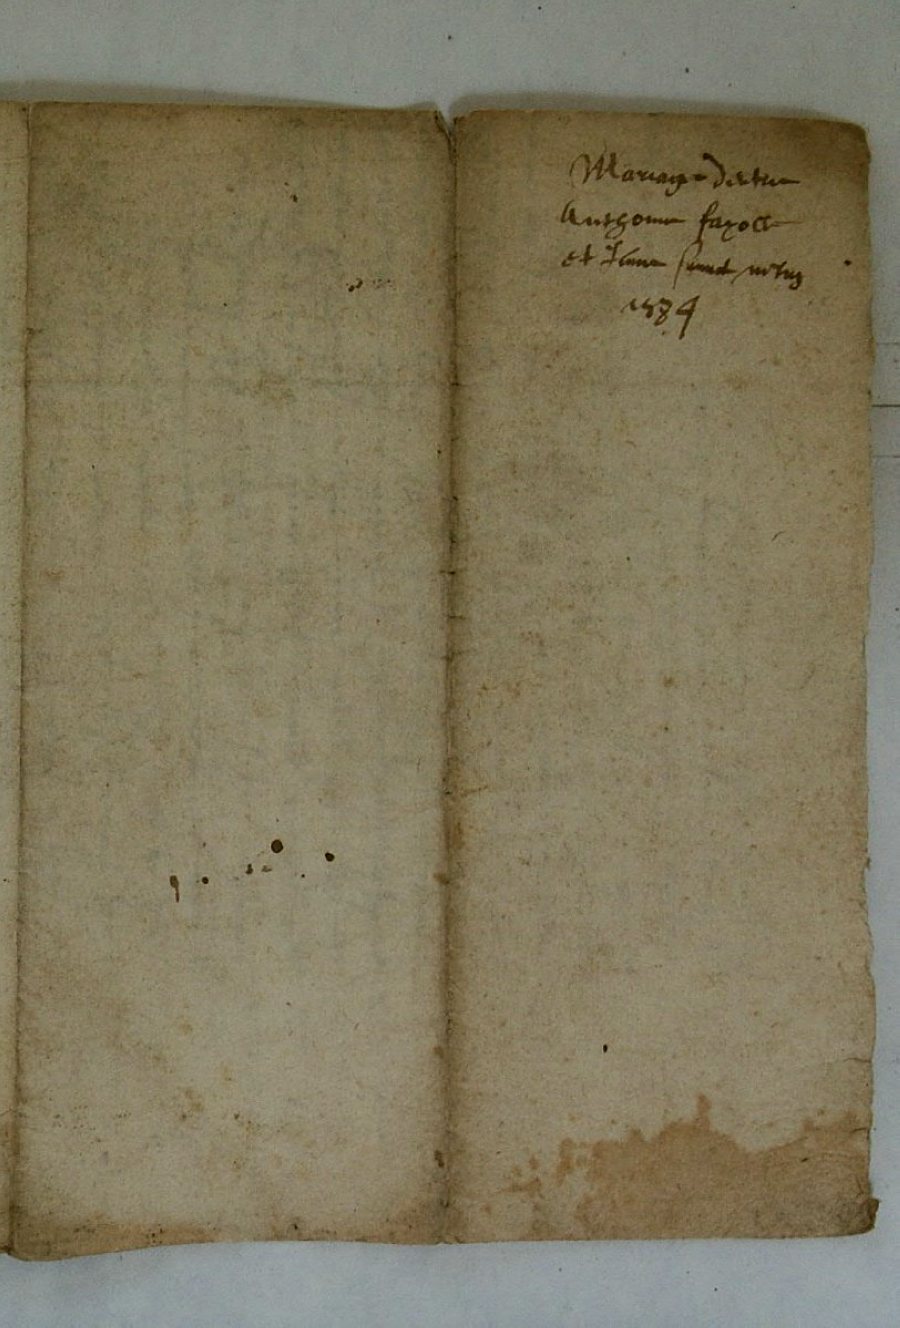 Mariage d'entre
Anthoine fayolle
et Jeanne
1584